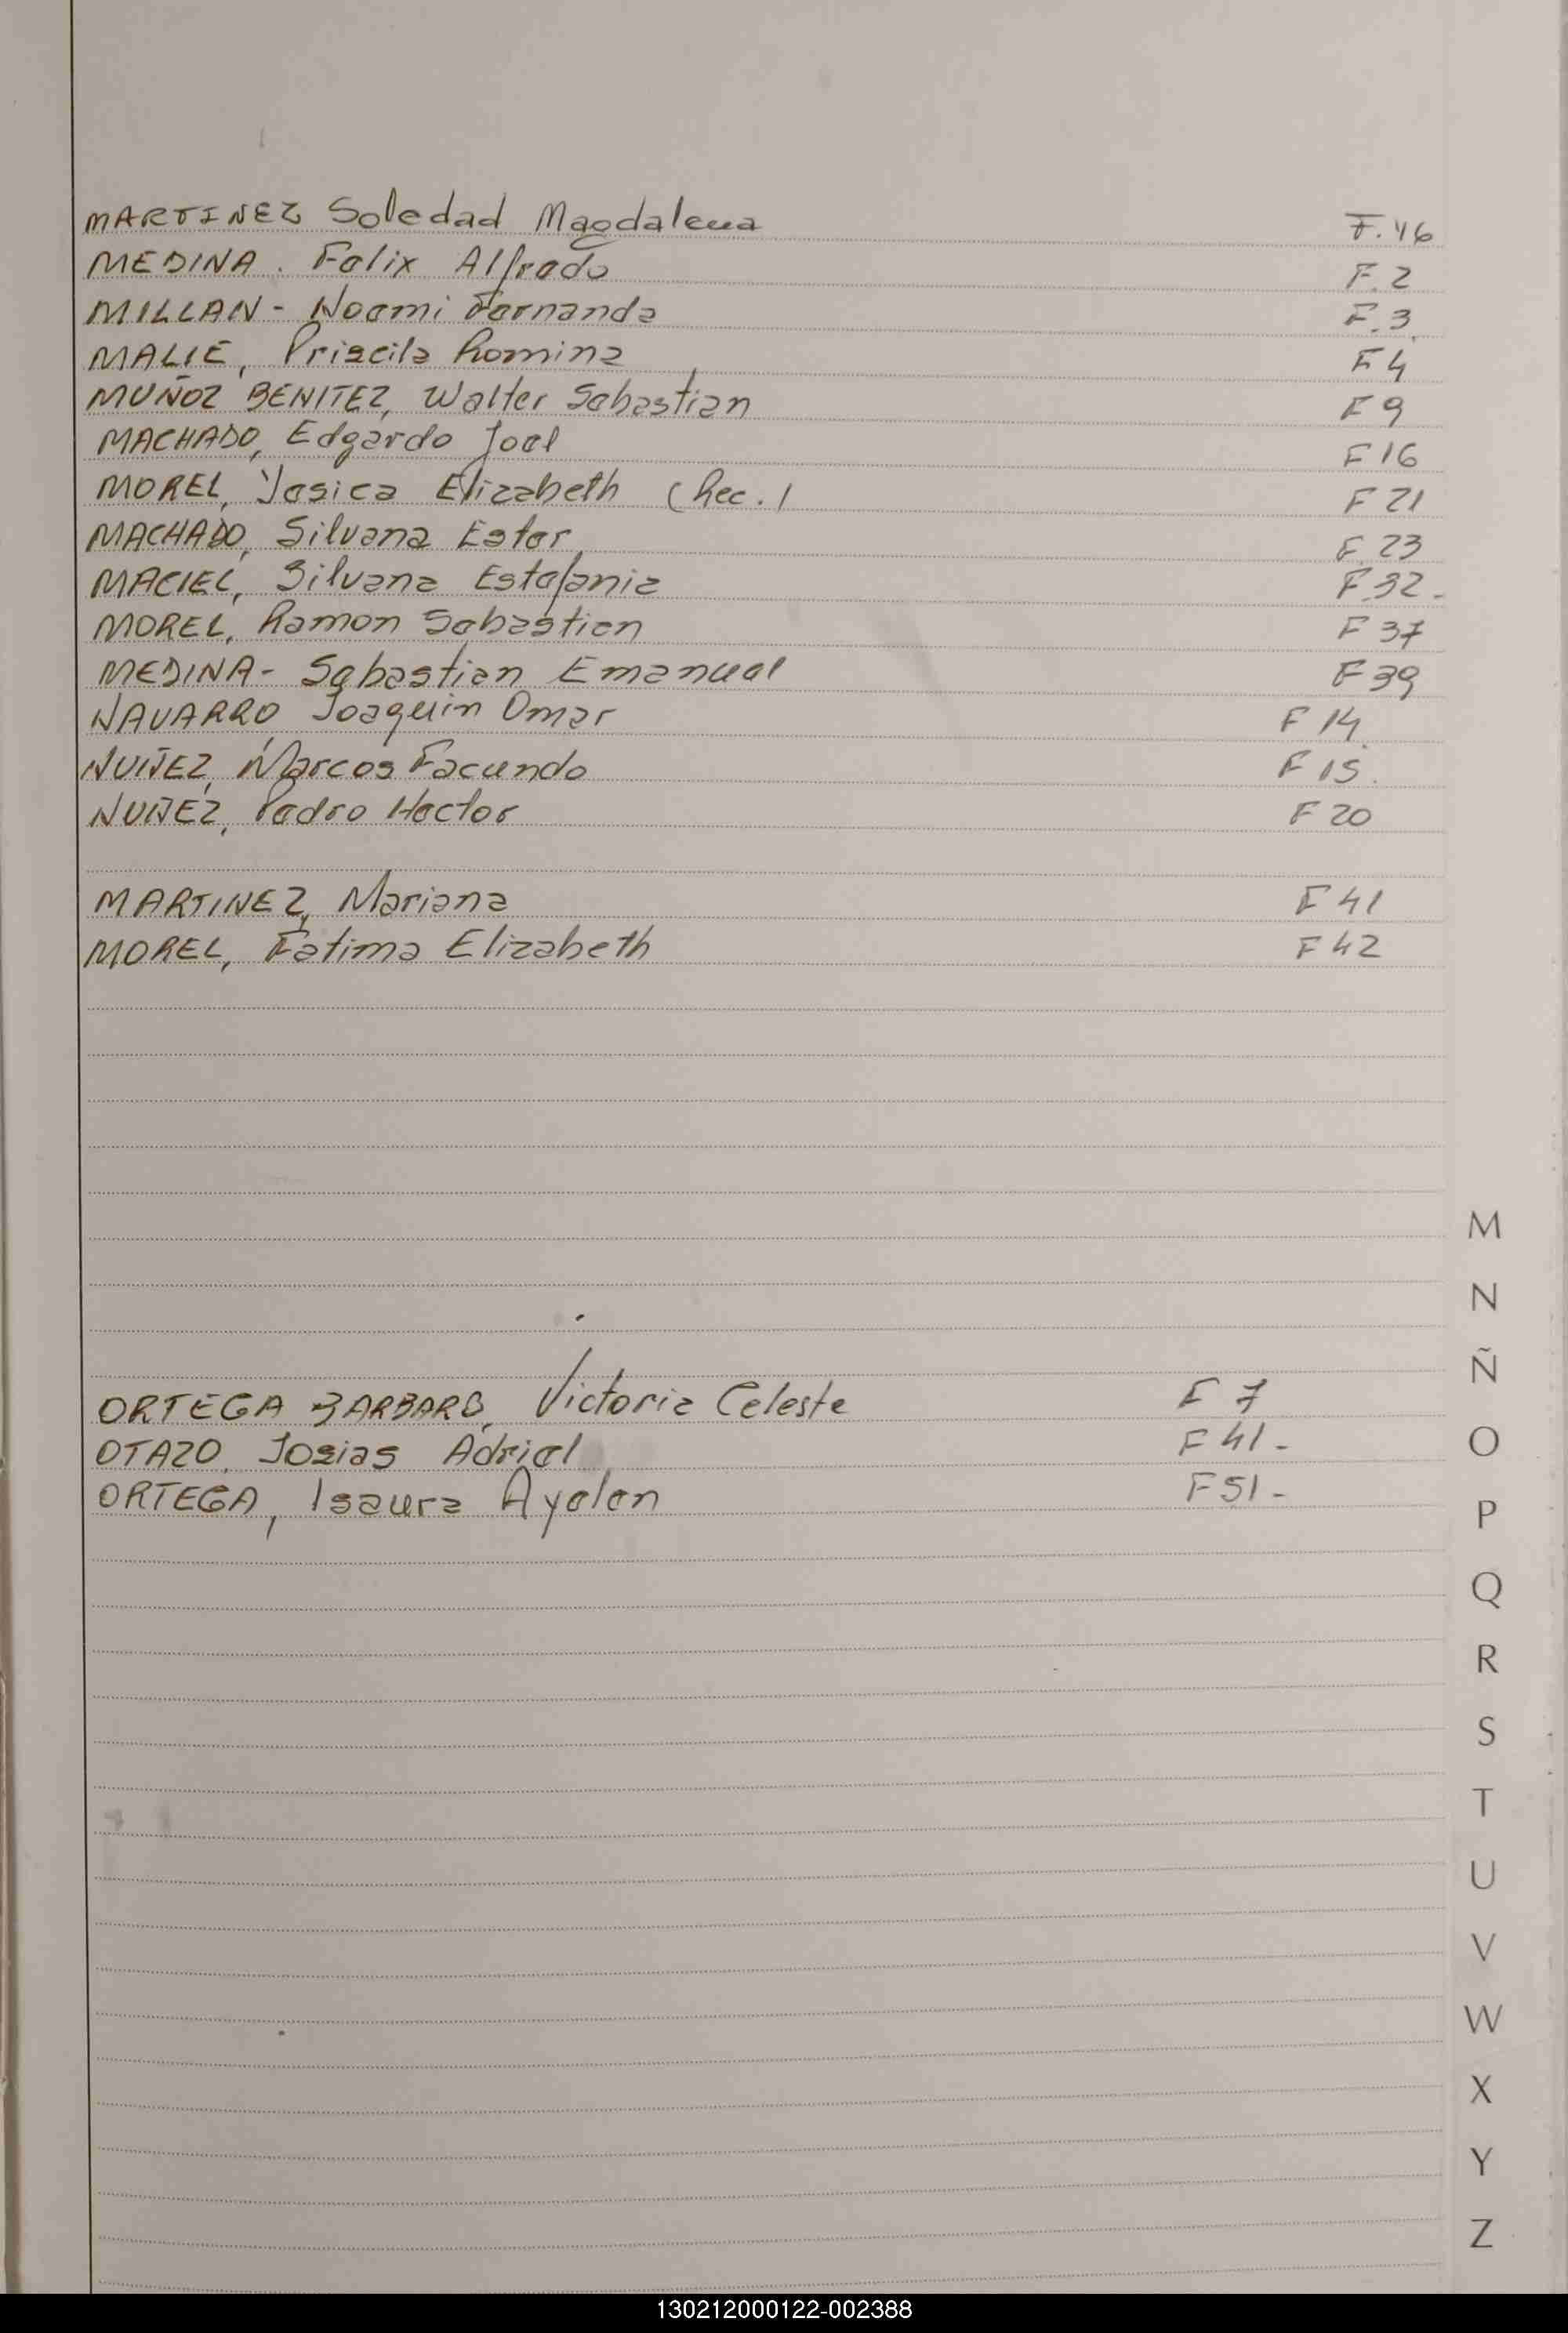 MARTINEZ Soledad Magdalena F.46
MEDINA. Felix Alfredo F.2
MILLAN - Noemi Fernanda F.3
MALIE, Priscila Romina F4
MUÑOZ BENITEZ, Walter Sebastian F9
MACHADO, Edgardo Joel F16
MOREL, Yesica Elizabeth (Rec.) F21
MACHADO, Silvana Ester F.23
MACIEL, Silvana Estefania F.32-
MOREL, Ramon Sebastian F37
MEDINA- Sebastian Emanuel F39
NAVARRO Joaquin Omar F14
NUÑEZ, Marcos Facundo F15.
NUÑEZ, Pedro Hector F20
MARTINEZ, Mariana F41
MOREL, Fatima Elizabeth F42
M
N
Ñ
ORTEGA BARBARO, Victoria Celeste F7
OTAZO, Josias Adriel F41-
O
ORTEGA, Isaura Ayelen F51-
P
Q
R
S
T
U
V
W
X
Y
Z
130212000122-002388